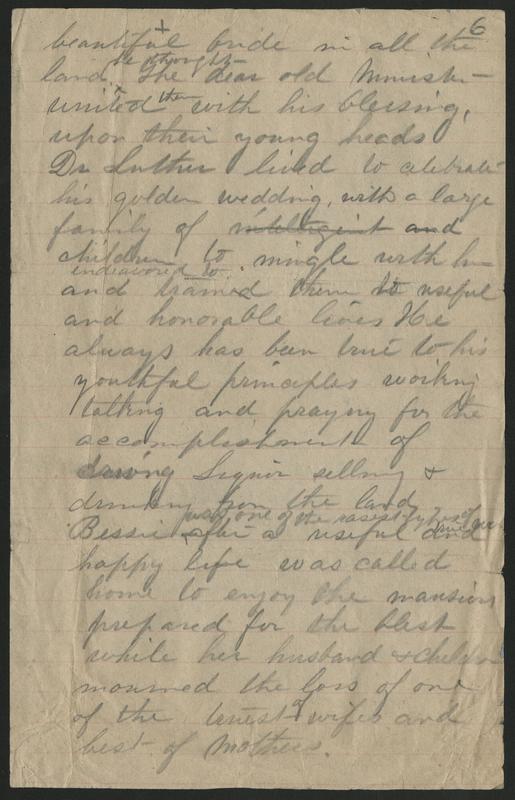 6
beautiful bride in all the
he thought
land, The dear old Minister
united them with his blessing,
upon their young heads
Dr Luther lived to celebrate
his golden wedding, with a large
family of intelligent and
children to mingle with
endeavored to
and trained them to useful
and honorable lives He
always has been true to his
youthful principles working
talking and praying for the
accomplishment of
driving Liquor selling &
drinking from the land
was one of the rarest types of
Bessie after a useful and
happy life was called
home to enjoy the mansion
prepared for the blest
while her husband & children
mourned the loss of one
of the truest of wifes and
best of Mothers.